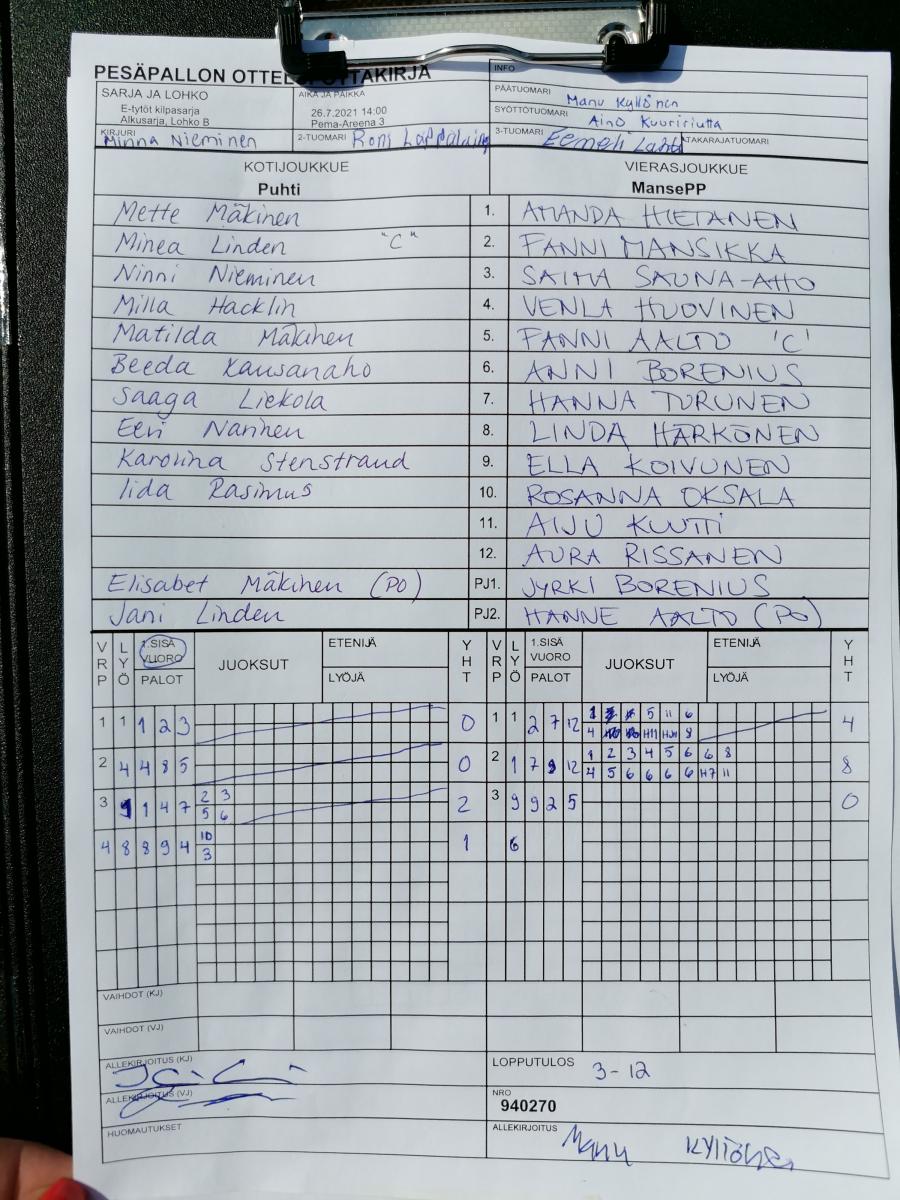 PESÄPALLON OTTELUPÖYTÄKIRJA
INFO
SARJA JA LOHKO
E-tytöt kilpasarja
Alkusarja, Lohko B
AIKA JA PAIKKA
26.7.2021 14:00
Pema-Areena 3
PÄÄTUOMARI Manu Kyllönen
SYÖTTÖTUOMARI Aino
KIRJURI Minna Nieminen
2-TUOMARI Roni
3-TUOMARI Eemeli Lahti
TAKARAJATUOMARI
KOTIJOUKKUE VIERASJOUKKUE
Puhti MansePP
Mette Mäkinen 1. AMANDA HIETANEN
Minea Linden "C" 2. FANNI MANSIKKA
Ninni Nieminen 3. SAIMA SAUNA-AHO
Milla Hacklin 4. VENLA HUOVINEN
Matilda Mäkinen 5. FANNI AALTO 'C'
Beeda Kausanaho 6. ANNI BORENIUS
Saaga Liekola 7. HANNA TURUNEN
Eevi Narinen 8. LINDA HÄRKÖNEN
Karolina Stenstrand 9. ELLA KOIVUNEN
Iida Rasimus 10. ROSANNA OKSALA
11. AIJU KUUTTI
12. AURA RISSANEN
Elisabet Mäkinen (PO) PJ1. JYRKI BORENIUS
Jani Linden PJ2. HANNE AALTO (PO)
VRP LYÖ 1.SISÄ VUORO PALOT JUOKSUT ETENIJÄ LYÖJÄ YHT VRP LYÖ 1.SISÄ VUORO PALOT JUOKSUT ETENIJÄ LYÖJÄ YHT
1 1 1 2 3 0 1 1 2 7 12 1 5 11 6 4
4 H11 8
2 4 4 8 5 0 2 1 7 9 12 1 2 3 4 5 6 6 8 8
4 5 6 6 6 6 H7 11
3 1 1 4 7 2 3 2 3 9 9 2 5 0
5 6
4 8 8 9 4 10 1 6
3
VAIHDOT (KJ)
VAIHDOT (VJ)
ALLEKIRJOITUS (KJ)
LOPPUTULOS 3-12
ALLEKIRJOITUS (VJ)
NRO
940270
HUOMAUTUKSET
ALLEKIRJOITUS Manu Kyllönen